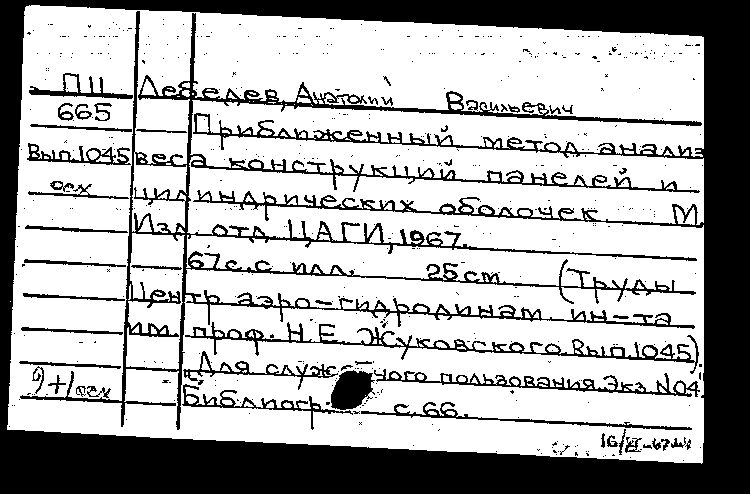 П11 Лебедев, Анатолий Васильевич
665 Приближенный метод анализ
Вып.1045 веса конструкций панелей и
осх цилиндрических оболочек. М.
Изд. отд. ЦАГИ, 1967.
67 с. с илл. 25 см. (Труды
Центр аэро-гидродинам. ин-та
им. проф. Н.Е. Жуковского. Вып.1045).
"Для служебного пользования. Экз. №04."
9+1 осх Библиогр.: с. 66.
16/XI-67